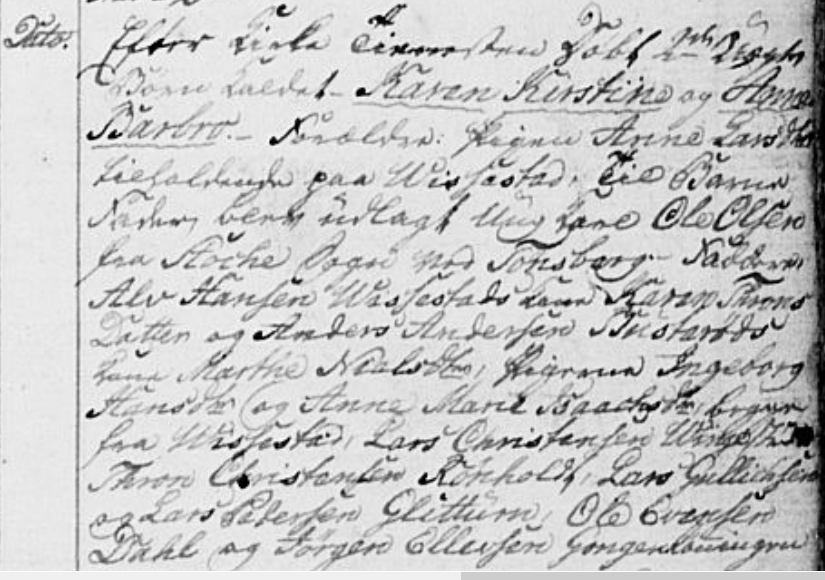 Dito. Efter Kirke Tienesten Døbt 2de Uægte
Børn kaldet - Karen Kirstine og Anne
Barbro. - Forældre: Pigen Anne Larsdtr
tilholdende paa Wissestad, Til Barne
Fader, blev udlagt Ung Karl Ole Olsen
fra Stoche Sogn ved Tønsberg - Faddere,
Alv Hansen Wissestads Kone Karen Throns
Datter og Anders Andersen Bustarøds
Kone Marthe Nielsdtr, Pigerne Ingeborg
Hansdtr og Anne Marie Isaachsdtr, begge
fra Wissestad, Lars Christensen
Thron Christensen Rønholdt, Lars Gullichsen
og Lars Pedersen Glittum, Ole Evensen
Dahl og Jørgen Ellevsen